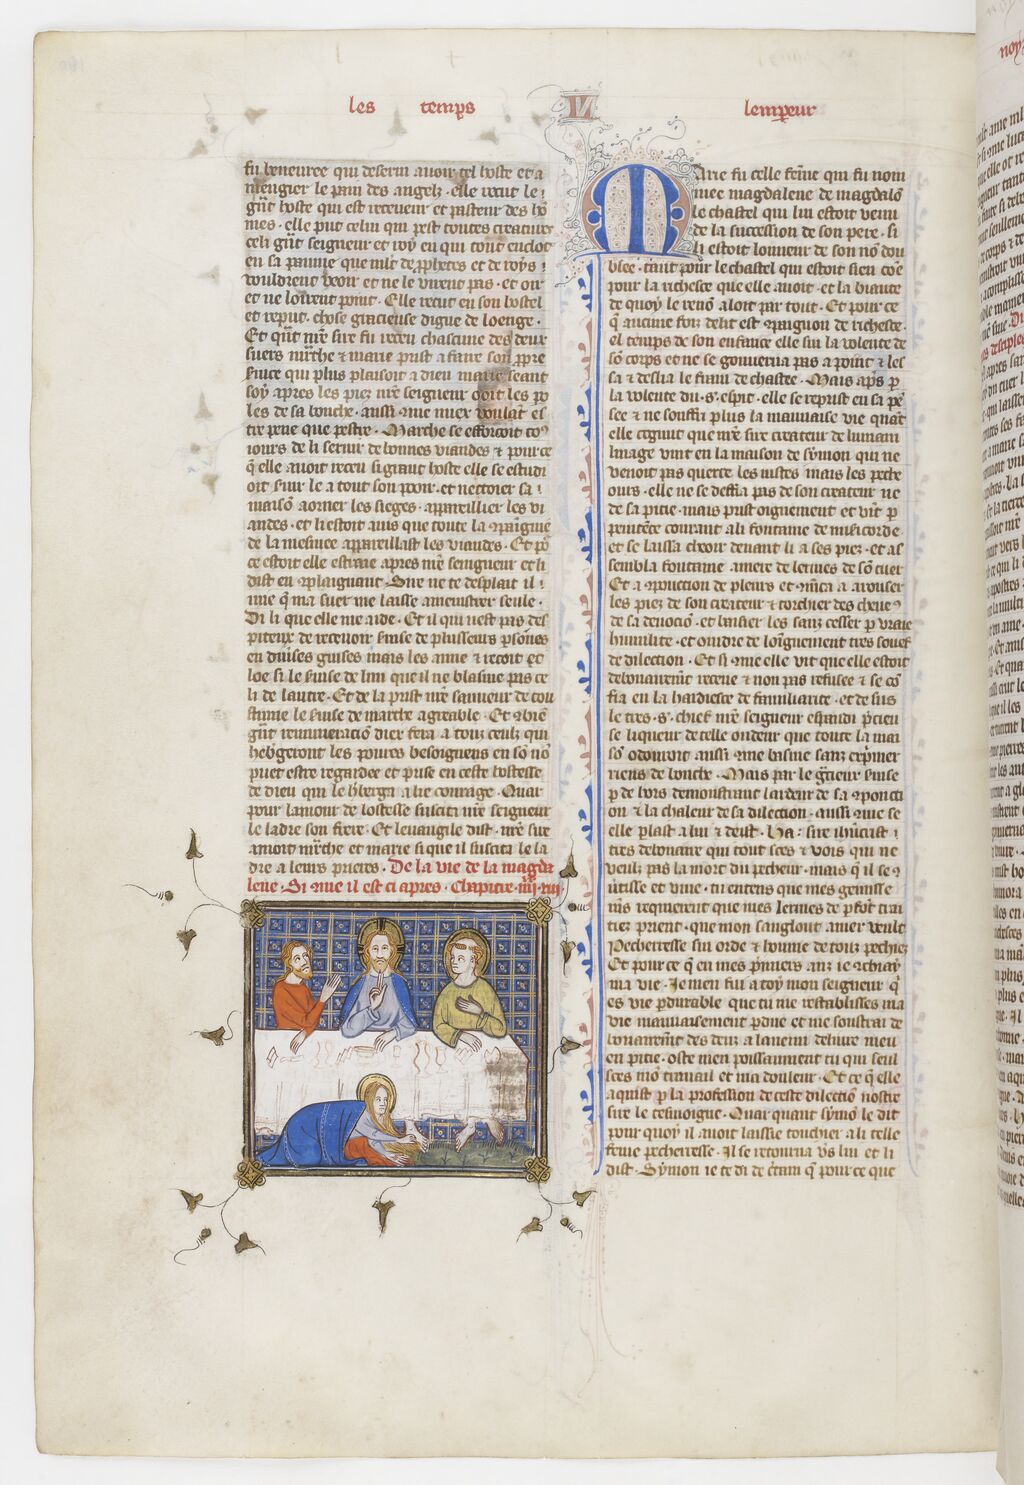 les temps
lempeur
fu beneuree qui deserui auoir tel hoste et a
mengier le pain des angelz . elle recut le .
gñt hoste qui est receueur et pasteur des hõ
mes . elle put celui qui pest toutes creatures
celi gñt seigneur et roy en qui tout enclot
en sa paume que mlt de pphetes et de roys .
vouldrent veoir et ne le virent pas . et oir
et ne loirent point . Elle recut en son hostel
et reput . chose gracieuse digne de loenge .
Et qñt nre sire fu receu chascune des deux
suers mrthe et marie prist a faire son ppre
seruice qui plus plaisoit a dieu marie seant
soy apres les piez nre seigneur ooit les pa
les de sa bouche . aussi que miex voulat es
tre peue que pestre . Marthe se efforcoit to9
iours de li seruir de bonnes viandes et pour ce
q elle auoit receu si grant hoste elle se estudi
oit seruir le a tout son pooir . et nettoier sa .
maisõ aorner les sieges . appareillier les vi
andes . et li estoit auis que toute la 9paignie
de la mesniee appareillast les viandes . Et põ
ce estoit elle estraie apres nre seigneur et li
dist en 9plaignant Sire ne te desplait il .
mie q ma suer me laisse amenistrer seule .
Di li que elle me aide . Et il qui nest pas des
piteux de receuoir seruise de plusieurs psones
en diuises guises mais les aime z recoit et
loe si le seruise de lun que il ne blasme pas ce
li de lautre . Et de la prist nre sauueur de cou
stume le seruise de marthe agreable . Et 9bien
gñt remuneraciõ dieu fera a touz ceulz qui
hebgeront les poures besoigneus en sõ nõ
puet estre regardee et prise en ceste hostesse
de dieu qui le hberga a lie courage . Quar
pour lamour de lostesse suscita nre seigneur
le ladre son frere . Et leuangile dist . nre sire
amoit mrthe et marie si que il suscita le la
dre a leurs prieres . De la vie de la magda
lene . Si que il est ci apres . Chapitre
Marie fu celle feme qui fu nom
mee magdalene de magdalõ
le chastel qui lui estoit venu
de la succession de son pere . si
li estoit lonneur de son nõ dou
blee . tant pour le chastel qui estoit sien cõe
pour la richesce que elle auoit . et la biaute
de quoy le renõ aloit par tout . Et pour ce
q aucune foiz delit est 9paignon de richesce .
el temps de son enfance elle sui la volente de
sõ corps et ne se gouuerna pas a point z les
sa z deslia le frain de chastee . Mais aps p
la volente du .s. espit . elle se reprist en sa pẽ
see z ne souffri plus la mauuaise vie quar
elle cognut que nre sire createur de lumain
linage vint en la maison de symon qui ne
venoit pas querre les iustes mais les peche
ours . elle ne se deffia pas de son createur ne
de sa pitie . mais prist oignement et vĩt p
penitẽce courant a li fontaine de misericorde .
et se laissa cheoir deuant li a ses piez . et as
sembla fontaine amere de lermes de sõ cuer
Et a 9ponction de pleurs et a arouser
les piez de son createur z torchier des cheue9
de sa deuocion . et baisier les sanz cesser p vraie
humilite . et oindre de loingnement tres souef
de dilection . Et si que elle vit que elle estoit
debonairemt receue z non pas refusee z se cõ
fia en la hardiesce de familiarite . et de sus
le tres .s. chief nre seigneur espandi pcieu
se liqueur de telle oudeur que toute la mai
sõ odouroit aussi que basme sanz exprimer
riens de bouche . Mais par le seruise
p de hors demonstrant lardeur de sa 9poncti
on z la chaleur de sa dilection . aussi que se
elle plast a lui z deist . Ha : sire ihucrist .
tres debonaire qui tout sces z vois qui ne
veulz pas la mort du pecheur . mais q il se 9
uertisse et viue . tu entens que mes gemisse
ms requierent que mes lermes de pfõt trai
tiez prient . que mon sanglout amer veult
Pecheresse sui orde z honnie de touz pechiez
Et pour ce q en mes pmiers anz ie 9chiay
ma vie . Je men fui a toy mon seigneur q
es vie pdurable que tu me restablisses ma
vie mauuaisement pdue et me soustrai de
bonairemt des denz a lanemi deliure men
en pitie . oste men poissanment tu qui seul
sces mõ trauail et ma douleur . Et ce q elle
aquist p la profession de ceste dilectiõ nostre
sire le tesmoigne . Quar quant symõ le dit
pour quoy il auoit laissie touchier a li celle
feme pecheresse . Il se retourna vs lui et li
dist . Symon ie te di de ctain q pour ce que